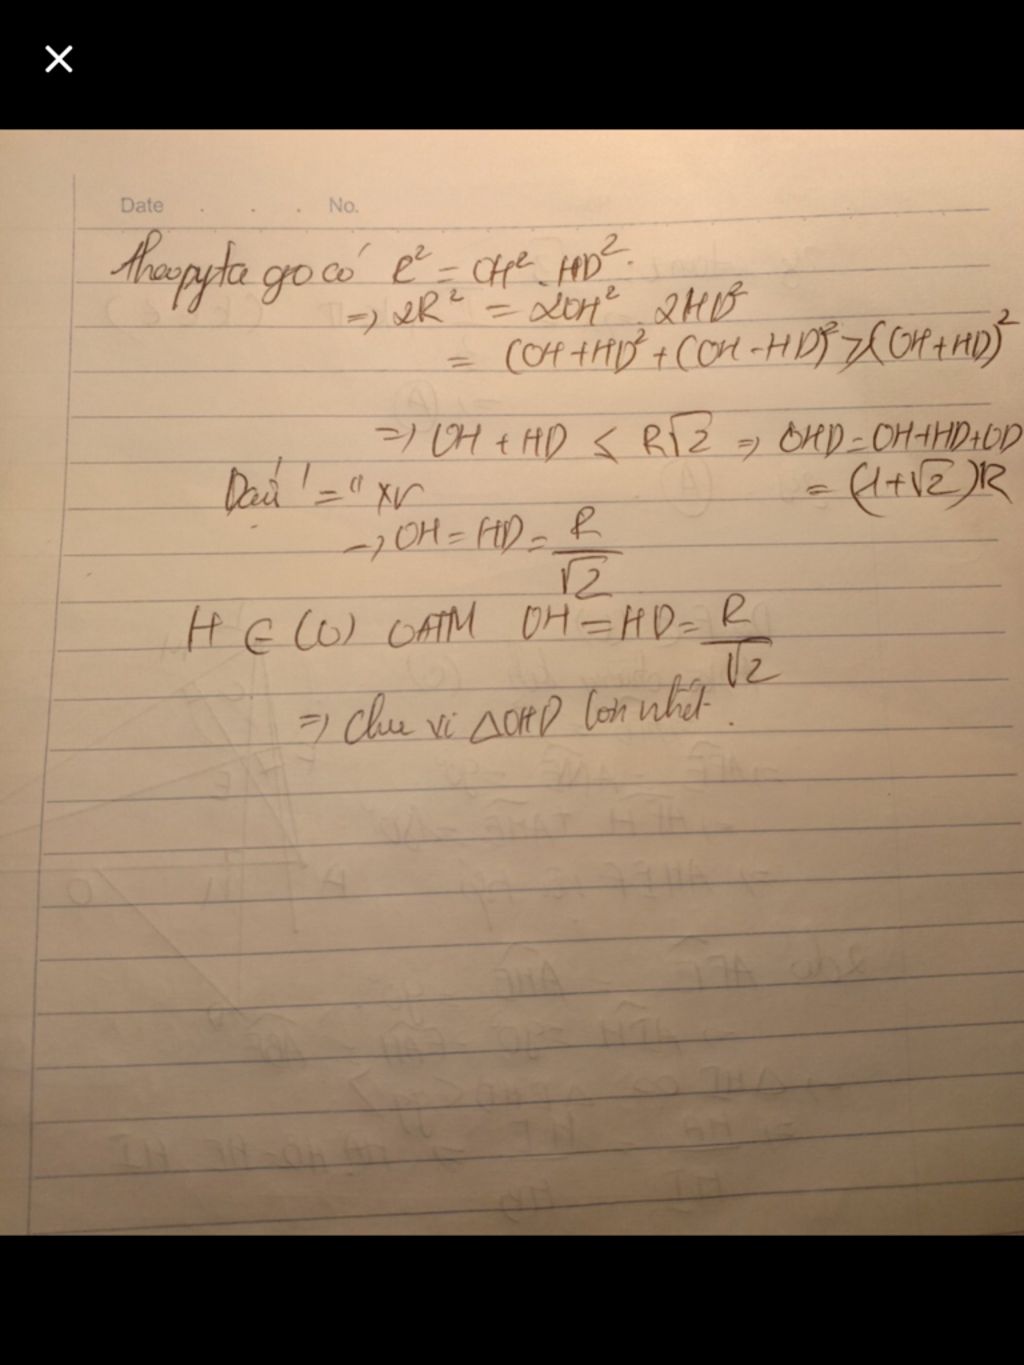 Date . . . No.
theo pyta go có R² = OH² . HD².
=> 2R² = 2OH² . 2HD²
= (OH+HD)² + (OH-HD)² ≥ (OH+HD)²
=> OH + HD ≤ R√2 => OHD = OH+HD+OD
= (1+√2)R
Dấu '=" xr
-> OH = HD = R/√2
H ∈ (O) OATM OH = HD = R/√2
=> Chu vi ΔOHD lớn nhất.